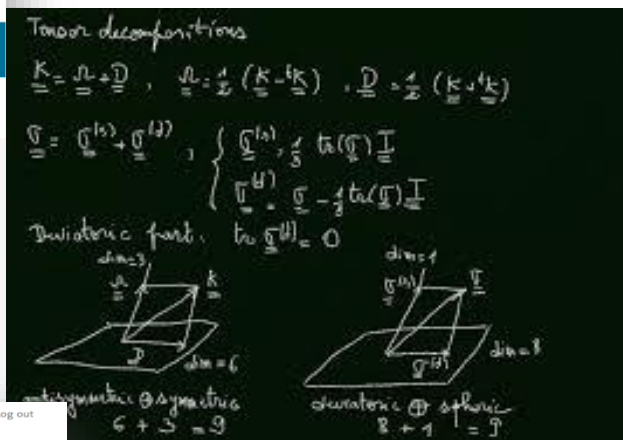 Tensor decompositions
K = Ω + D , Ω = 1/2 (K - ᵗK) , D = 1/2 (K + ᵗK)
σ = σ⁽ˢ⁾ + σ⁽ᵈ⁾ , { σ⁽ˢ⁾ = 1/3 tr(σ) I
σ⁽ᵈ⁾ = σ - 1/3 tr(σ) I
Deviatoric part. tr σ⁽ᵈ⁾ = 0
dim=3 dim=1
Ω K σ⁽ˢ⁾ σ
D dim=6 σ⁽ᵈ⁾ dim=8
antisymmetric ⊕ symmetric deviatoric ⊕ spheric
6 + 3 = 9 8 + 1 = 9
og out